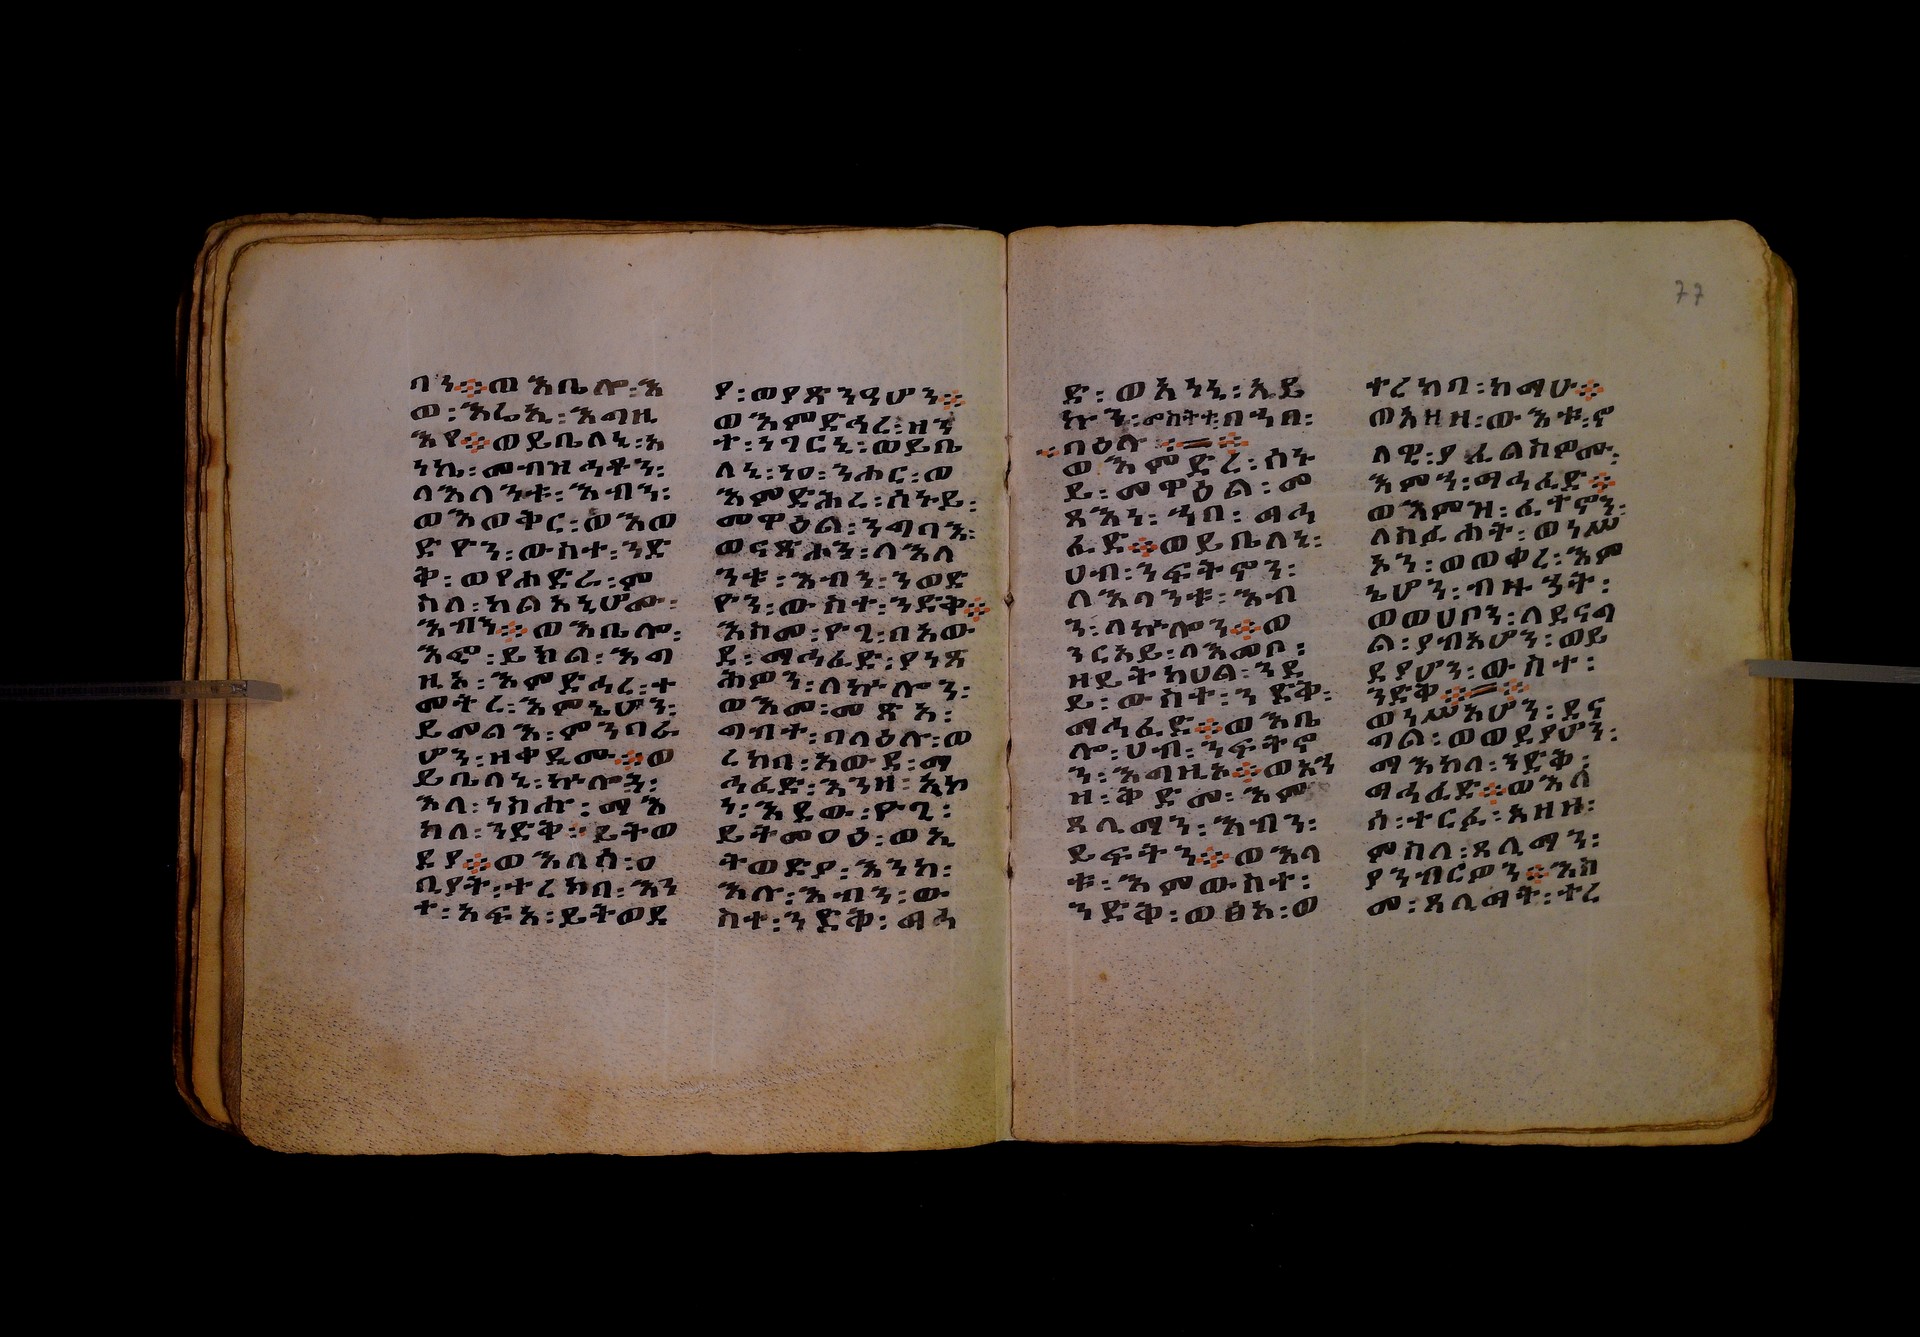 ባን፨ወእቤሎ፡እ
ወ፡እሬኢ፡እግዚ
እየ፨ወይቤለኒ፡አ
ንኬ፡መብዝኃቶን፡
ለእለንቱ፡እብን፡
ወእወቅር፡ወእወ
ድዮን፡ውስተ፡ንድ
ቅ፡ወየሐድራ፡ም
ስለ፡ካልአኒሆሙ፡
እብን፨ወእቤሎ፡
እፎ፡ይክል፡እግ
ዚእ፡እምድኃረ፡ተ
መትረ፡እምኔሆን፡
ይመልእ፡ምንባሬ
ሆን፡ዘቀዲሙ፨ወ
ይቤለኒ፡ኵሎን፡
እለ፡ንስሑ፡ማእ
ከለ፡ንድቅ፡ይትወ
ደያ፨ወእለሰ፡ዐ
ቢያት፡ተረክበ፡እን
ተ፡አፍአ፡ይትወደ
ያ፡ወያጽንዓሆን፨
ወእምድኃረ፡ዘን
ተ፡ነገርኒ፡ወይቤ
ለኒ፡ነዐ፡ንሑር፡ወ
እምድሕረ፡ሰኑይ፡
መዋዕል፡ንግባእ፡
ወናጽሕን፡ለእለ
ንቱ፡እብን፡ንወድ
ዮን፡ውስተ፡ንድቅ፨
እስመ፡ዮጊ፡በአው
ደ፡ማኃፈድ፡ያነጽ
ሕዎን፡ለኵሎን፡
ወእመ፡መጽአ፡
ግብተ፡ባለዕሉ፡ወ
ረከበ፡አውደ፡ማ
ኃፈድ፡እንዘ፡ኢኮ
ነ፡እደው፡ዮጊ፡
ይትመዐዕ፡ወኢ
ትወድያ፡እንከ፡
እሉ፡እብን፡ው
ስተ፡ንድቅ፡ማኃ
ድ፡ወአነኒ፡አይ
ኩን፡መስተተበነበ፡
በዕሉ፨
ወእምድረ፡ሰኑ
ይ፡መዋዕል፡መ
ጻእነ፡ኀበ፡ማኃ
ፈድ፨ወይቤለኒ፡
ሀብ፡ንፍትኖን፡
ለእላንቱ፡እብ
ን፡ለኵሎን፨ወ
ንርአይ፡ለእመቦ፡
ዘይትከሀል፡ንደ
ይ፡ውስተ፡ንድቅ፡
ማኃፈድ፨ወእቤ
ሎ፡ሀብ፡ንፍትኖ
ን፡እግዚእ፨ወእን
ዘ፡ቅድመ፡እም
ጸሊማን፡እብን፡
ይፍትን፨ወእላ
ቱ፡እምውስተ፡
ንድቅ፡ወፅአ፡ወ
ተረክባ፡ከማሁ፨
ወአዘዘ፡ውእቱ፡ኖ
ላዊ፡ያፈልስዎሙ፡
እምነ፡ማኃፈድ፨
ወእምዝ፡ፈትኖን፡
ለስፈሐት፡ወነሥ
አን፡ወወቀረ፡እም
ኔሆን፡ብዙኃት፡
ወወሀቦን፡ለደናግ
ል፡ያብእሆን፡ወይ
ደያሆን፡ውስተ፡
ንድቅ፨
ወነሥአሆን፡ደና
ግል፡ወወደያሆን፡
ማእከለ፡ንድቅ፡
ማኃፈድ፨ወእለ
ሰ፡ተርፈ፡አዘዘ፡
ምስለ፡ጸሊማን፡
ያንብርዎን፨እስ
መ፡ጸሊማት፡ተረ
77